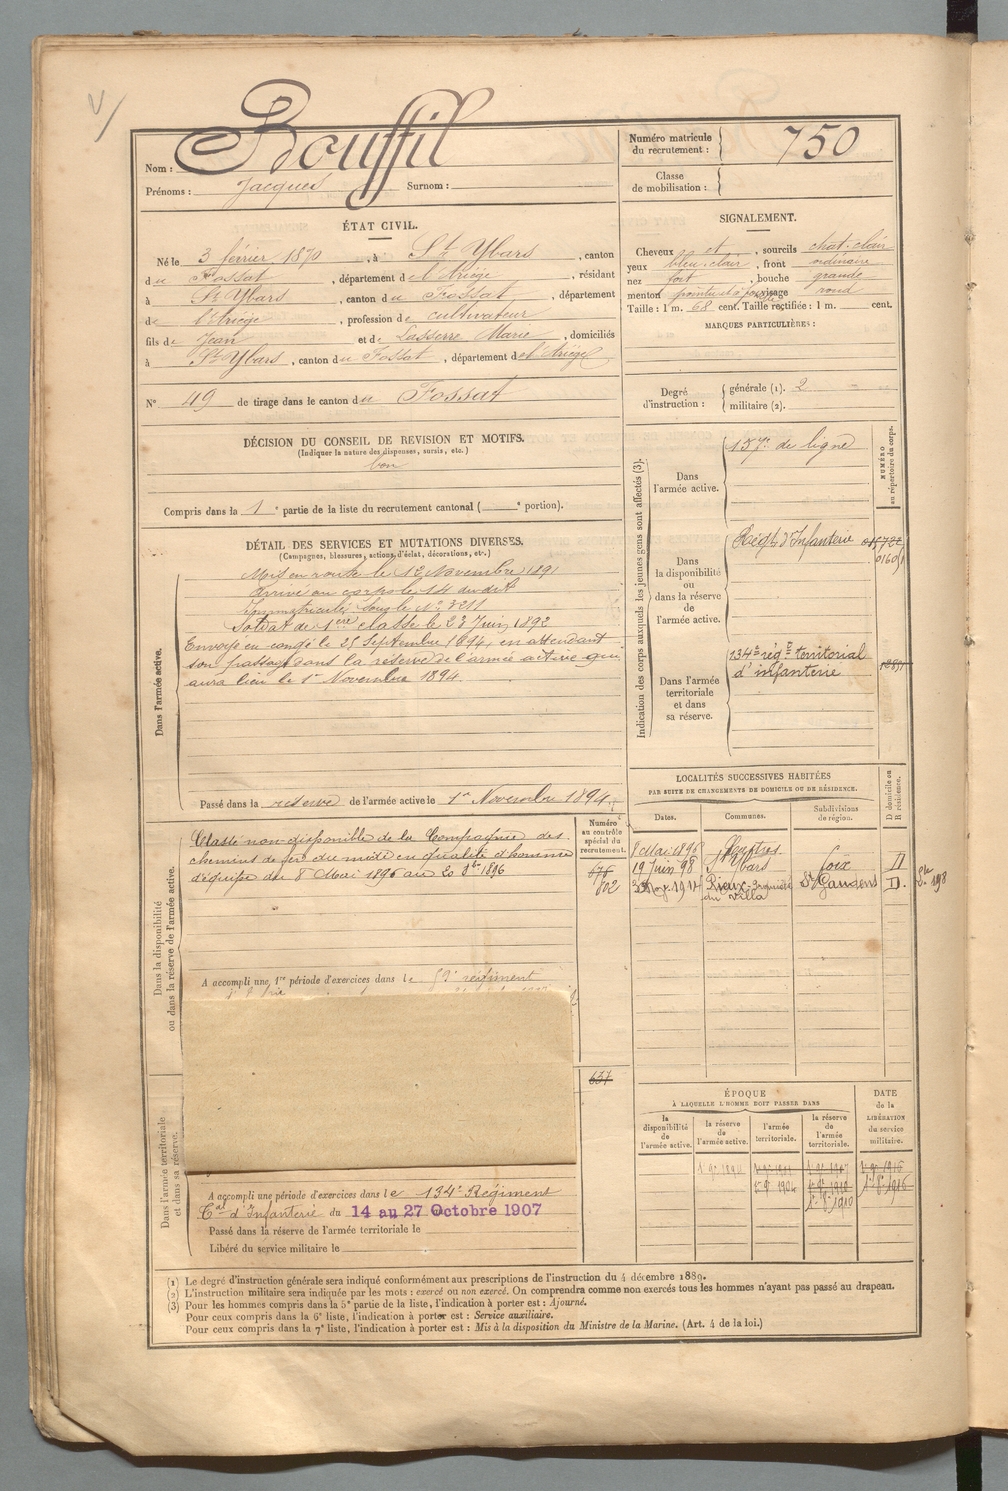 Bouffil
Nom :
Prénoms : Jacques Surnom :
Numéro matricule
du recrutement : 750
Classe
de mobilisation :
ÉTAT CIVIL.
Né le 3 février 1870, à St Ybars, canton
du Fossat, département de l'Ariège, résidant
à St Ybars, canton du Fossat, département
de l'Ariège, profession de cultivateur
fils de Jean et de Lasserre Marie, domiciliés
à St Ybars, canton du Fossat, département de l'Ariège
N° 49 de tirage dans le canton du Fossat
SIGNALEMENT.
Cheveux et, sourcils chat. clair
yeux bleu-clair, front ordinaire
nez fort, bouche grande
menton pointu et à fossette visage rond
Taille : 1 m. 68 cent. Taille rectifiée : 1 m. cent.
MARQUES PARTICULIÈRES :
Degré
d'instruction :
générale (1). 2
militaire (2).
DÉCISION DU CONSEIL DE REVISION ET MOTIFS.
(Indiquer la nature des dispenses, sursis, etc.)
bon
Compris dans la 1e partie de la liste du recrutement cantonal ( e portion).
DÉTAIL DES SERVICES ET MUTATIONS DIVERSES.
(Campagnes, blessures, actions d'éclat, décorations, etc.)
Dans l'armée active.
Mis en route le 12 Novembre 1891
Arrivé au corps le 14 du dit
Immatriculé sous le N° 3211
Soldat de 1ère classe le 23 Juin 1892
Envoyé en congé le 25 Septembre 1894, en attendant
son passage dans la réserve de l'armée active qui
aura lieu le 1er Novembre 1894
Passé dans la réserve de l'armée active le 1er Novembre 1894.
Indication des corps auxquels les jeunes gens sont affectés (3).
NUMÉRO
au répertoire du corps.
Dans
l'armée active.
157e de ligne
Dans
la disponibilité
ou dans la réserve
de
l'armée active.
Régt d'Infanterie
Dans l'armée
territoriale
et dans
sa réserve.
134e régt territorial
d'infanterie
LOCALITÉS SUCCESSIVES HABITÉES
PAR SUITE DE CHANGEMENTS DE DOMICILE OU DE RÉSIDENCE.
Dates. Communes. Subdivisions
de région. D domicile ou
R résidence.
8 Mai 1896
19 Juin 98 St Ybars Foix D
1914 Rieux St Gaudens D.
Dans la disponibilité
ou dans la réserve de l'armée active.
Numéro
au contrôle
spécial du
recrutement.
676
802
Classé non-disponible de la Compagnie des
chemins de fer du midi en qualité d'homme
d'équipe du 8 Mai 1896 au 20 8bre 1896
A accompli une 1re période d'exercices dans le 59e régiment
637
Dans l'armée territoriale
et dans sa réserve.
A accompli une période d'exercices dans le 134e Régiment
Tal d'Infanterie du 14 au 27 Octobre 1907
Passé dans la réserve de l'armée territoriale le
Libéré du service militaire le
ÉPOQUE
À LAQUELLE L'HOMME DOIT PASSER DANS
DATE
de la
LIBÉRATION
du service
militaire.
la
disponibilité
de
l'armée active.
la réserve
de
l'armée active.
l'armée
territoriale.
la réserve
de
l'armée
territoriale.
(1) Le degré d'instruction générale sera indiqué conformément aux prescriptions de l'instruction du 4 décembre 1889.
(2) L'instruction militaire sera indiquée par les mots : exercé ou non exercé. On comprendra comme non exercés tous les hommes n'ayant pas passé au drapeau.
(3) Pour les hommes compris dans la 5e partie de la liste, l'indication à porter est : Ajourné.
Pour ceux compris dans la 6e liste, l'indication à porter est : Service auxiliaire.
Pour ceux compris dans la 7e liste, l'indication à porter est : Mis à la disposition du Ministre de la Marine. (Art. 4 de la loi.)